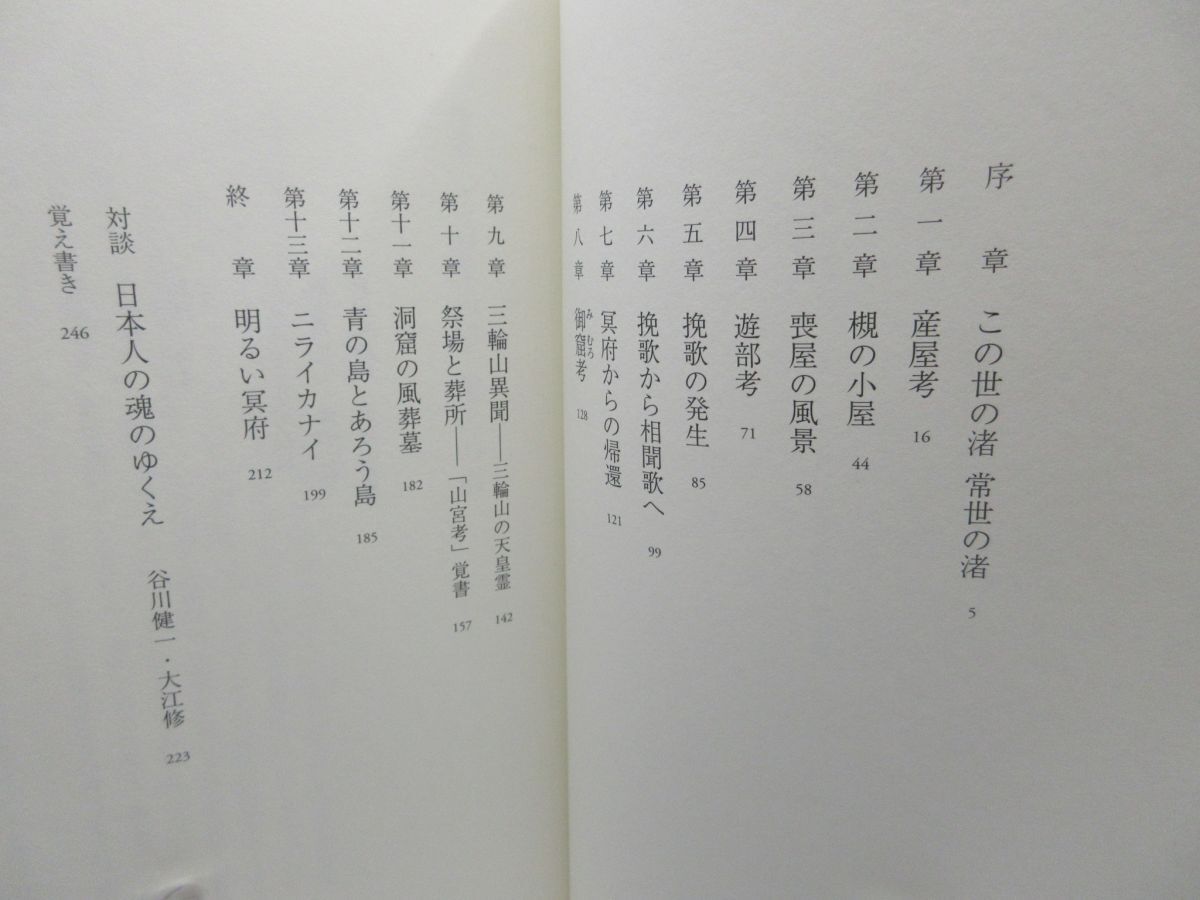 序章 この世の渚 常世の渚 5
第一章 産屋考 16
第二章 槻の小屋 44
第三章 喪屋の風景 58
第四章 遊部考 71
第五章 挽歌の発生 85
第六章 挽歌から相聞歌へ 99
第七章 冥府からの帰還 121
第八章 御窟考 128
みむろ
第九章 三輪山異聞――三輪山の天皇霊 142
第十章 祭場と葬所――「山宮考」覚書 157
第十一章 洞窟の風葬墓 182
第十二章 青の島とあろう島 185
第十三章 ニライカナイ 199
終章 明るい冥府 212
対談 日本人の魂のゆくえ 谷川健一・大江修 223
覚え書き 246